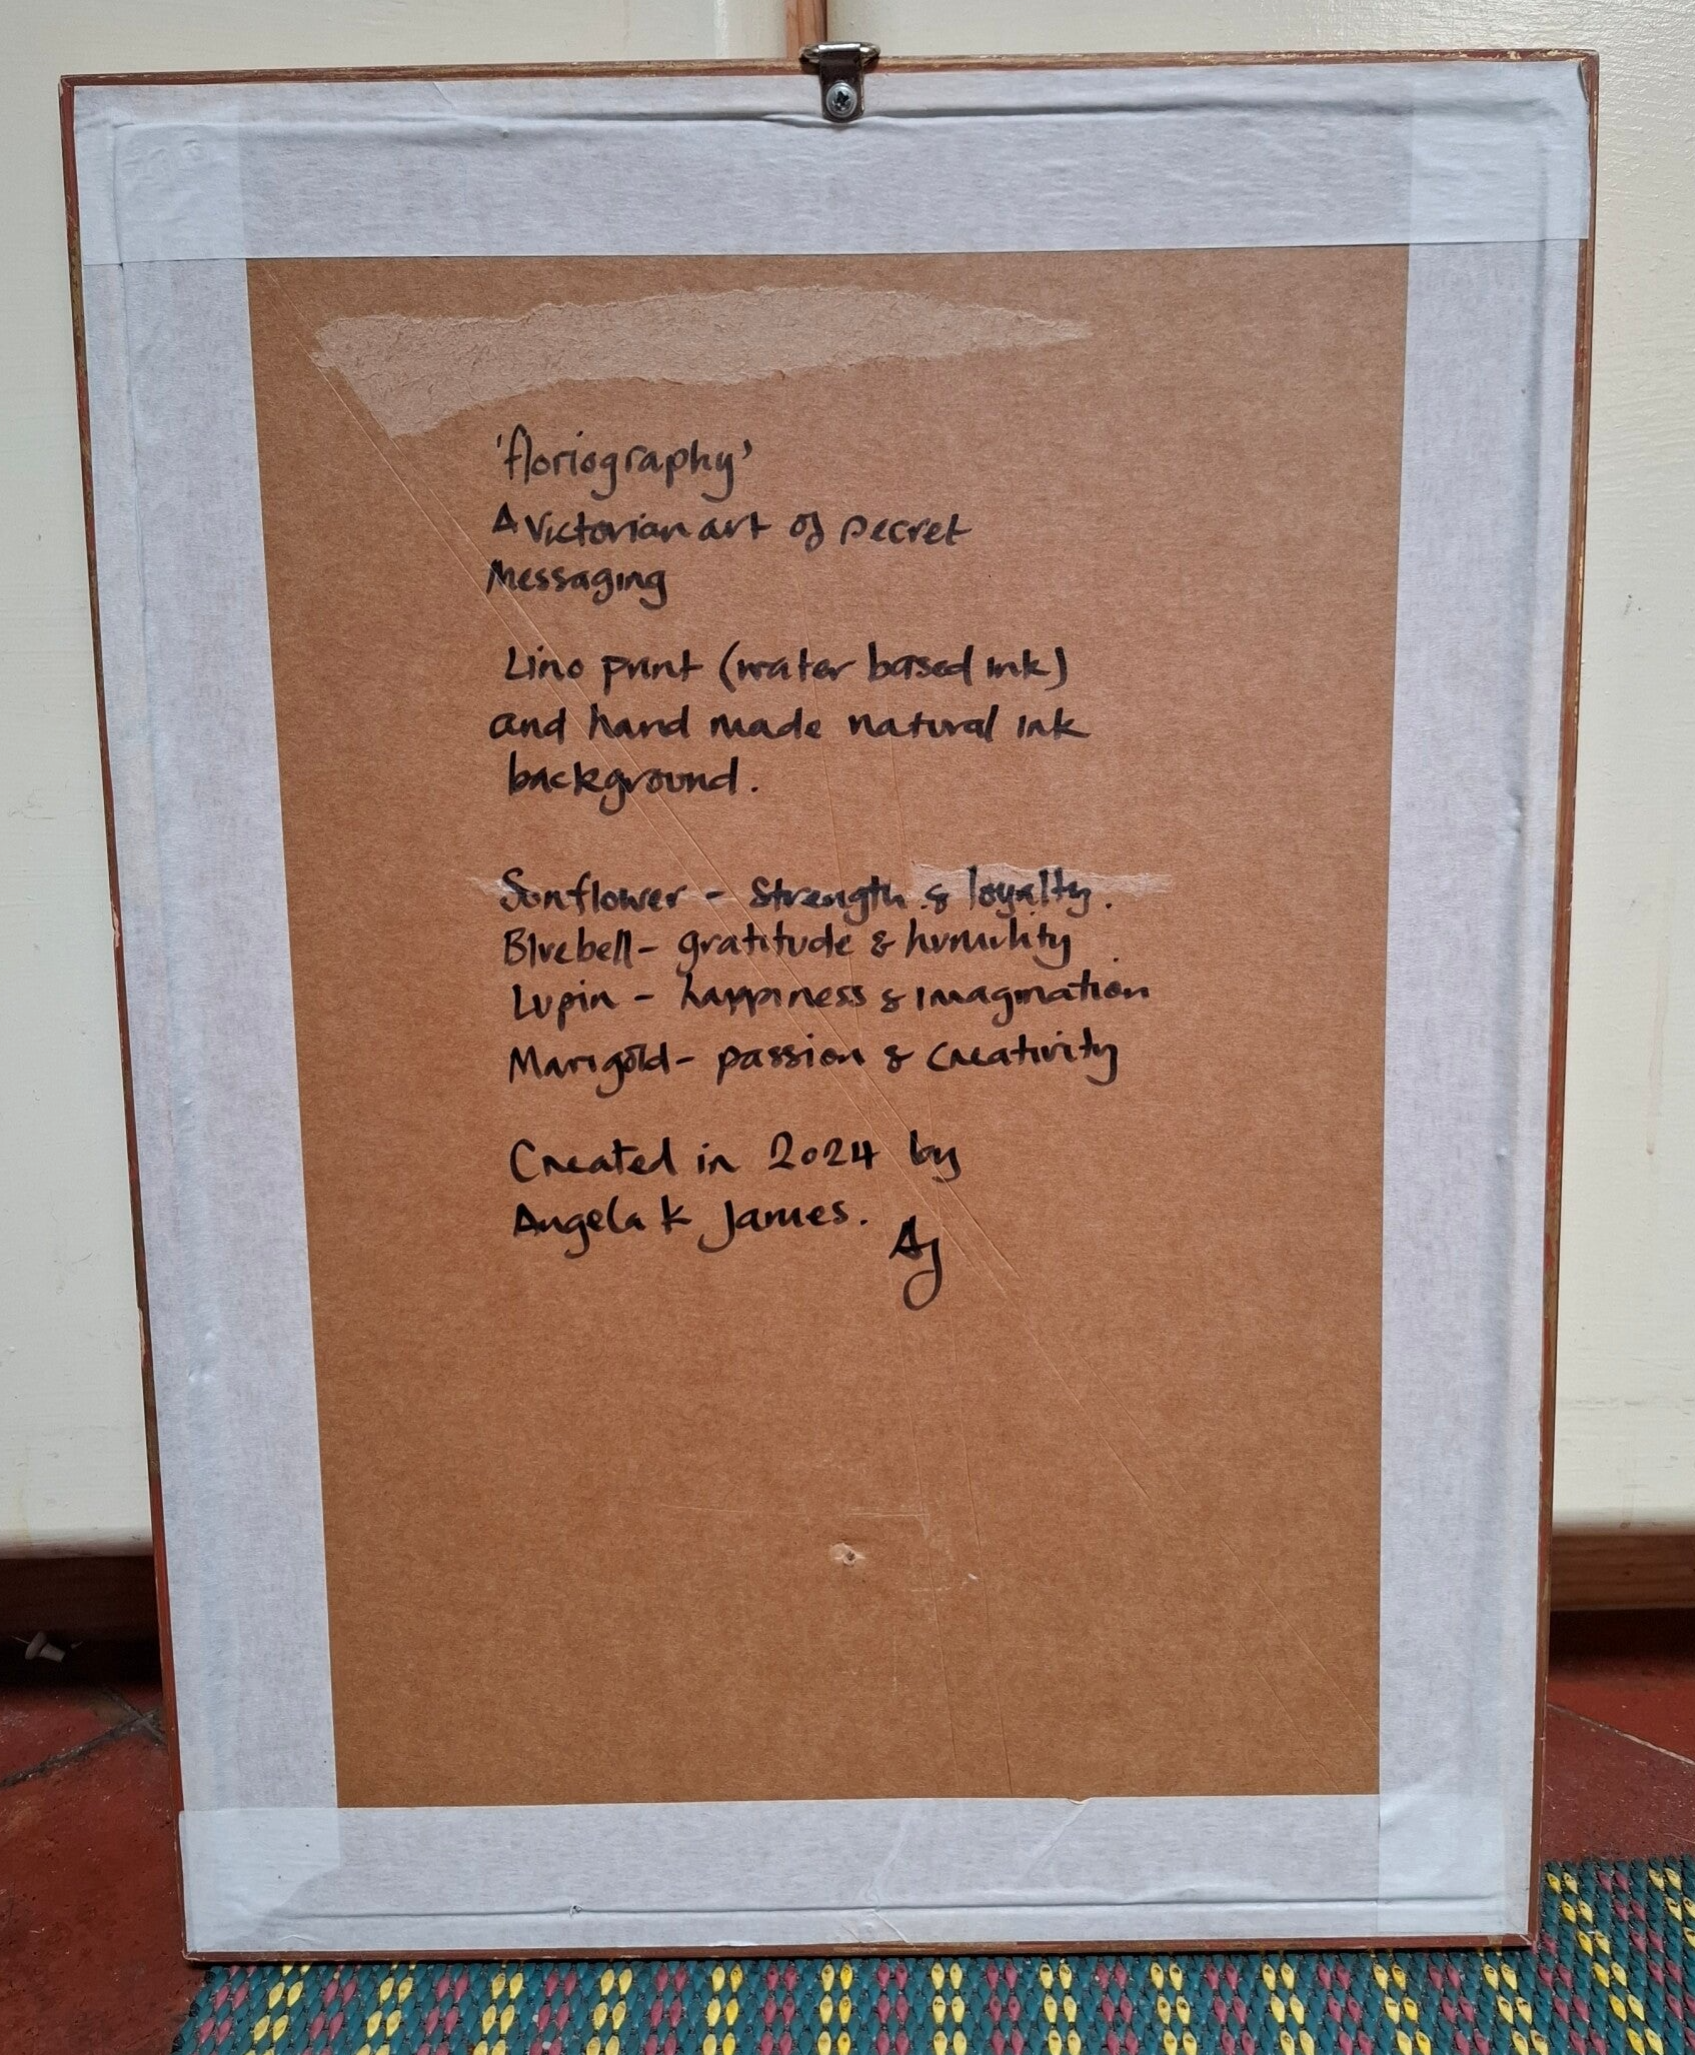 'floriography'
A Victorian art of secret
Messaging
Lino print (water based ink)
and hand made natural ink
background.
Sunflower - Strength & loyalty.
Bluebell - gratitude & humility
Lupin - happiness & imagination
Marigold - passion & creativity
Created in 2024 by
Angela K James.
AJ